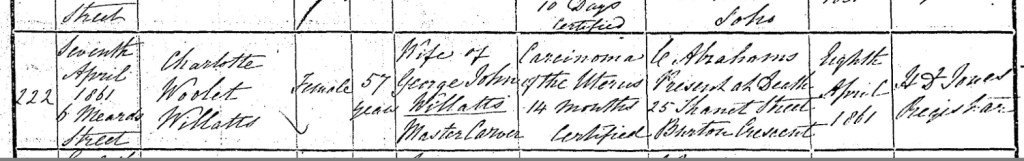 Street
10 Days
Certified
Soho
222
Seventh
April
1861
6 Meards
Street
Charlotte
Woolet
Willatts
Female
57
years
Wife of
George John
Willatts
Master Carver
Carcinoma
of the Uterus
14 months
Certified
C Abrahams
Present at Death
25 Thanet Street
Burton Crescent
Eighth
April
1861
Registrar